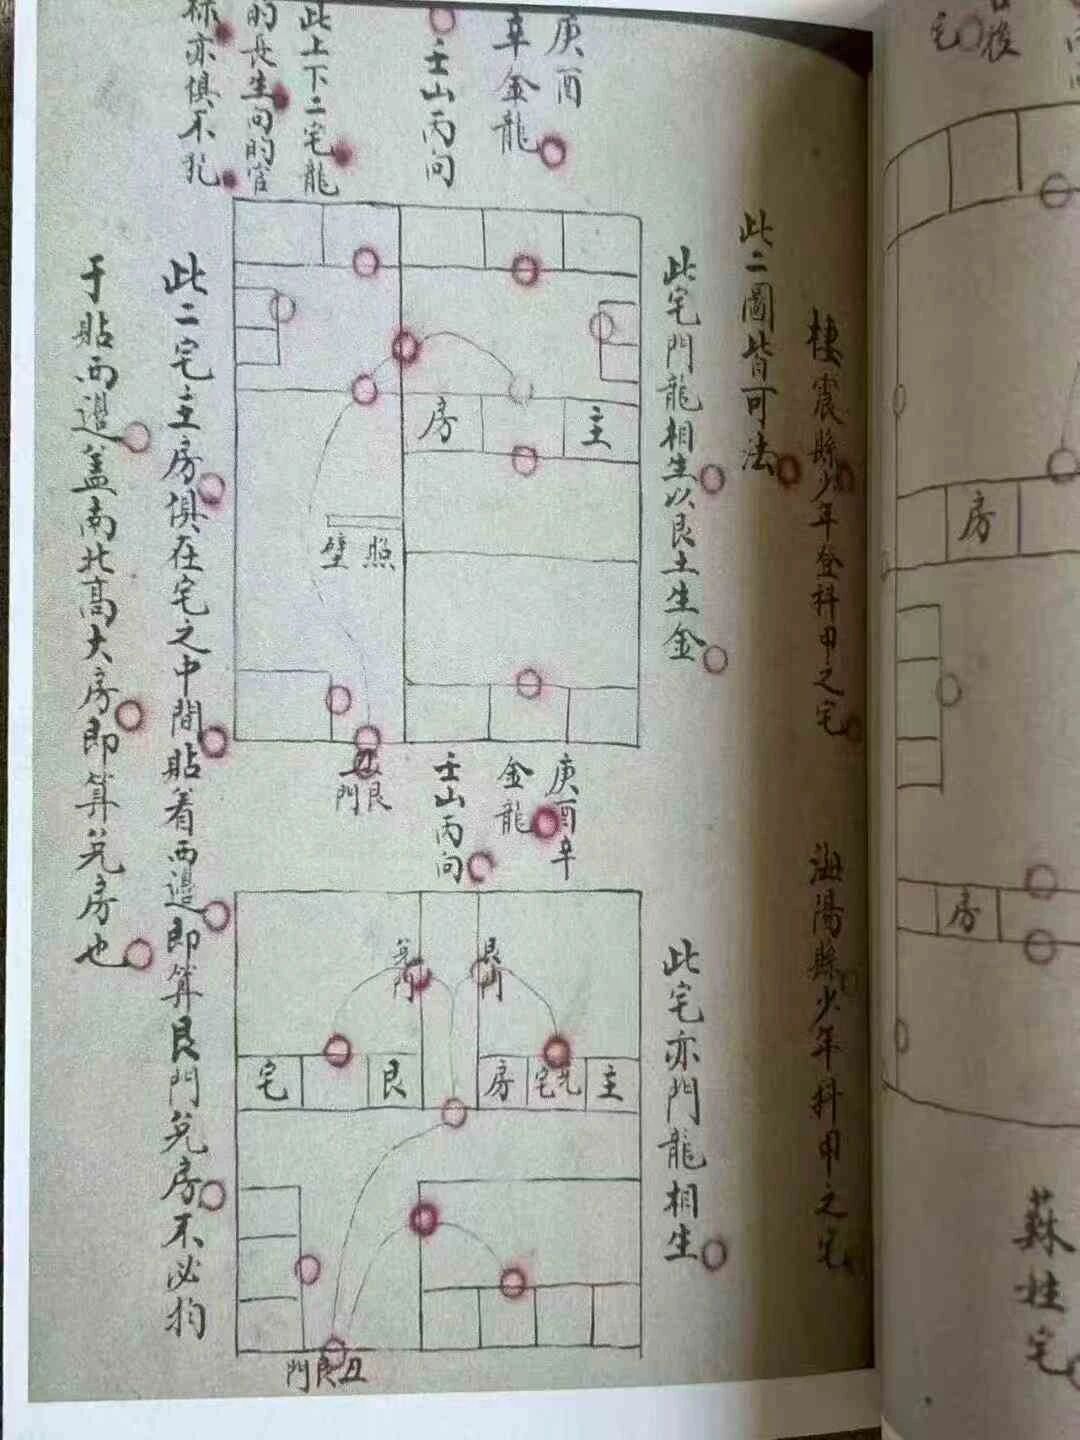 棲震縣少年登科甲之宅
海陽縣少年科甲之宅
此二圖皆可法
此宅門龍相生以艮土生金
此宅亦門龍相生
庚酉
辛金龍
壬山丙向
此上下二宅龍
的長生向的官
祿亦俱不犯
房
主
照
壁
丑艮
門
庚酉辛
金龍
壬山丙向
兌門
艮門
主
兌宅
房
艮
宅
丑艮門
此二宅主房俱在宅之中間貼着西邉即算艮門兌房不必拘
于貼西邉盖南北高大房即算兌房也
後
宅
房
房
蘇姓宅